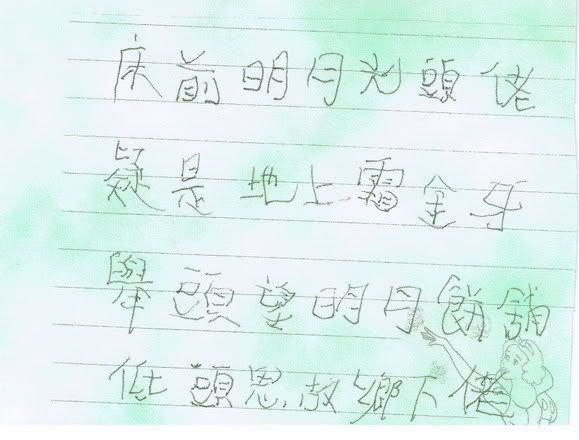 床前明月光頭佬
疑是地上霜金牙
舉頭望明月餅舖
低頭思故鄉下佬